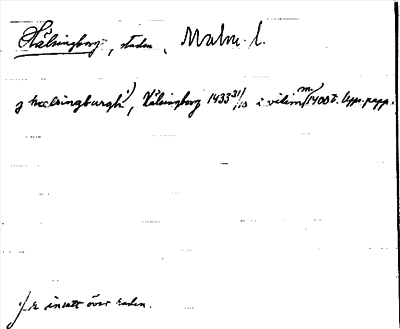 Hälsingborg, staden, Malm. l.
j hælsingburgh 1), Hälsingborg 1433 31/10 i vidim 1400 t. Upps. papp.
1) h insatt över raden.